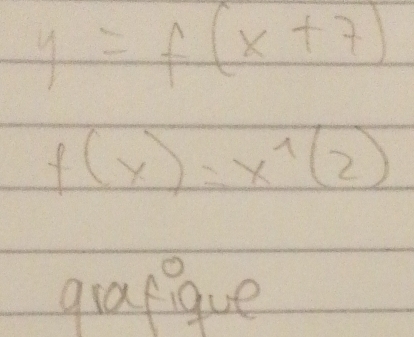 y = f(x+7)
f(x)=x^(2)
grafique